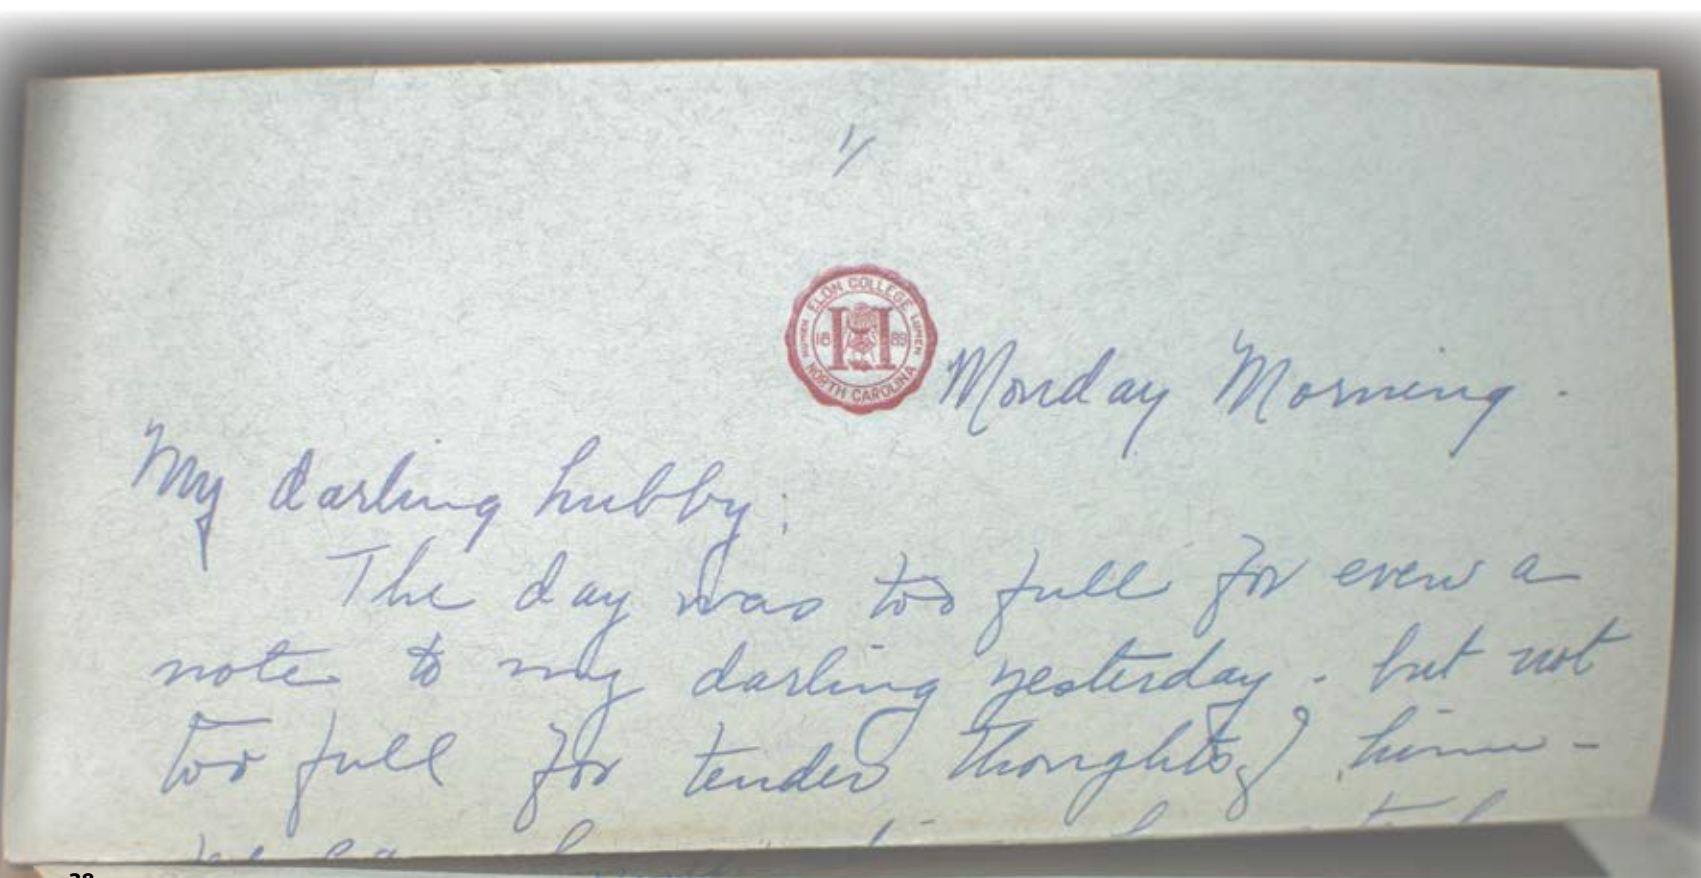 1/
ELON COLLEGE
NUMEN LUMEN
18 89
NORTH CAROLINA
Monday Morning.
My darling hubby:
The day was too full for even a
note to my darling yesterday - but not
too full for tender thoughts of him -